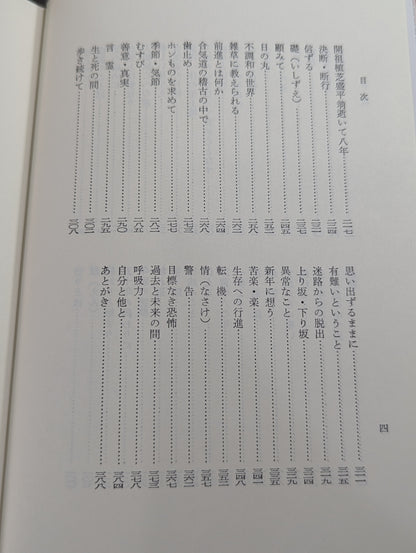 目次
開祖植芝盛平翁逝いて八年 二一七
決断・断行
信ずる
礎(いしずえ) 二三七
顧みて 二四五
日の丸
不調和の世界
雑草に教えられる
前進とは何か 二六四
合気道の稽古の中で 二六八
歯止め 二七三
ホンものを求めて 二七七
季節・気節 二八二
むすび 二八六
善意・真実 二九〇
言霊 二九五
生と死の間
歩き続けて 三〇八
思い出ずるままに 三一一
有難いということ 三一五
迷路からの脱出 三一九
上り坂・下り坂
異常なこと 三二九
新年に想う 三三五
苦楽・楽 三四一
生存への行進
転機
情(なさけ) 三五七
警告 三六二
目標なき恐怖 三六七
過去と未来の間 三七三
呼吸力 三七八
自分と他と 三八四
あとがき 三八八
四